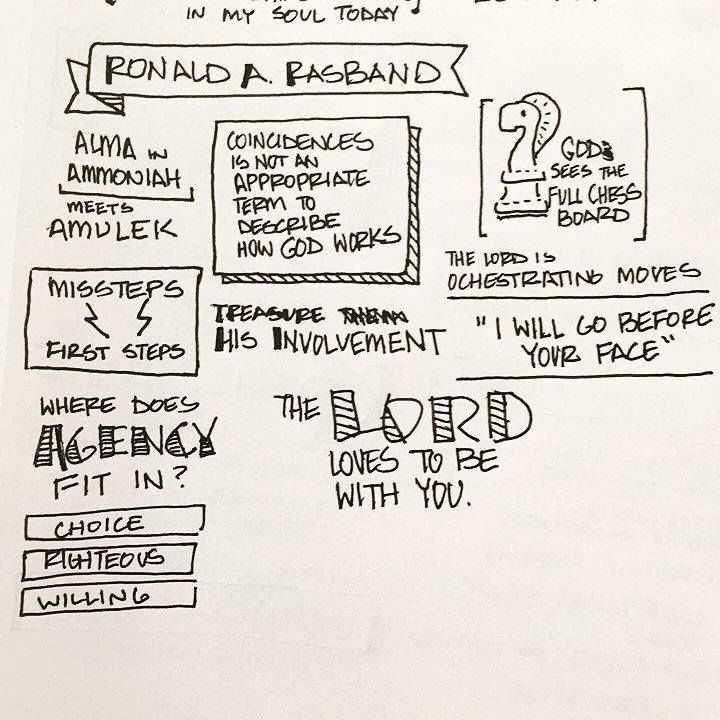 IN MY SOUL TODAY
RONALD A. RASBAND
ALMA IN
AMMONIAH
MEETS
AMULEK
COINCIDENCES
IS NOT AN
APPROPRIATE
TERM TO
DESCRIBE
HOW GOD WORKS
GOD
SEES THE
FULL CHESS
BOARD
THE LORD IS
OCHESTRATING MOVES
"I WILL GO BEFORE
YOUR FACE"
MISSTEPS
FIRST STEPS
TREASURE
HIS INVOLVEMENT
WHERE DOES
AGENCY
FIT IN?
CHOICE
RIGHTEOUS
WILLING
THE LORD
LOVES TO BE
WITH YOU.